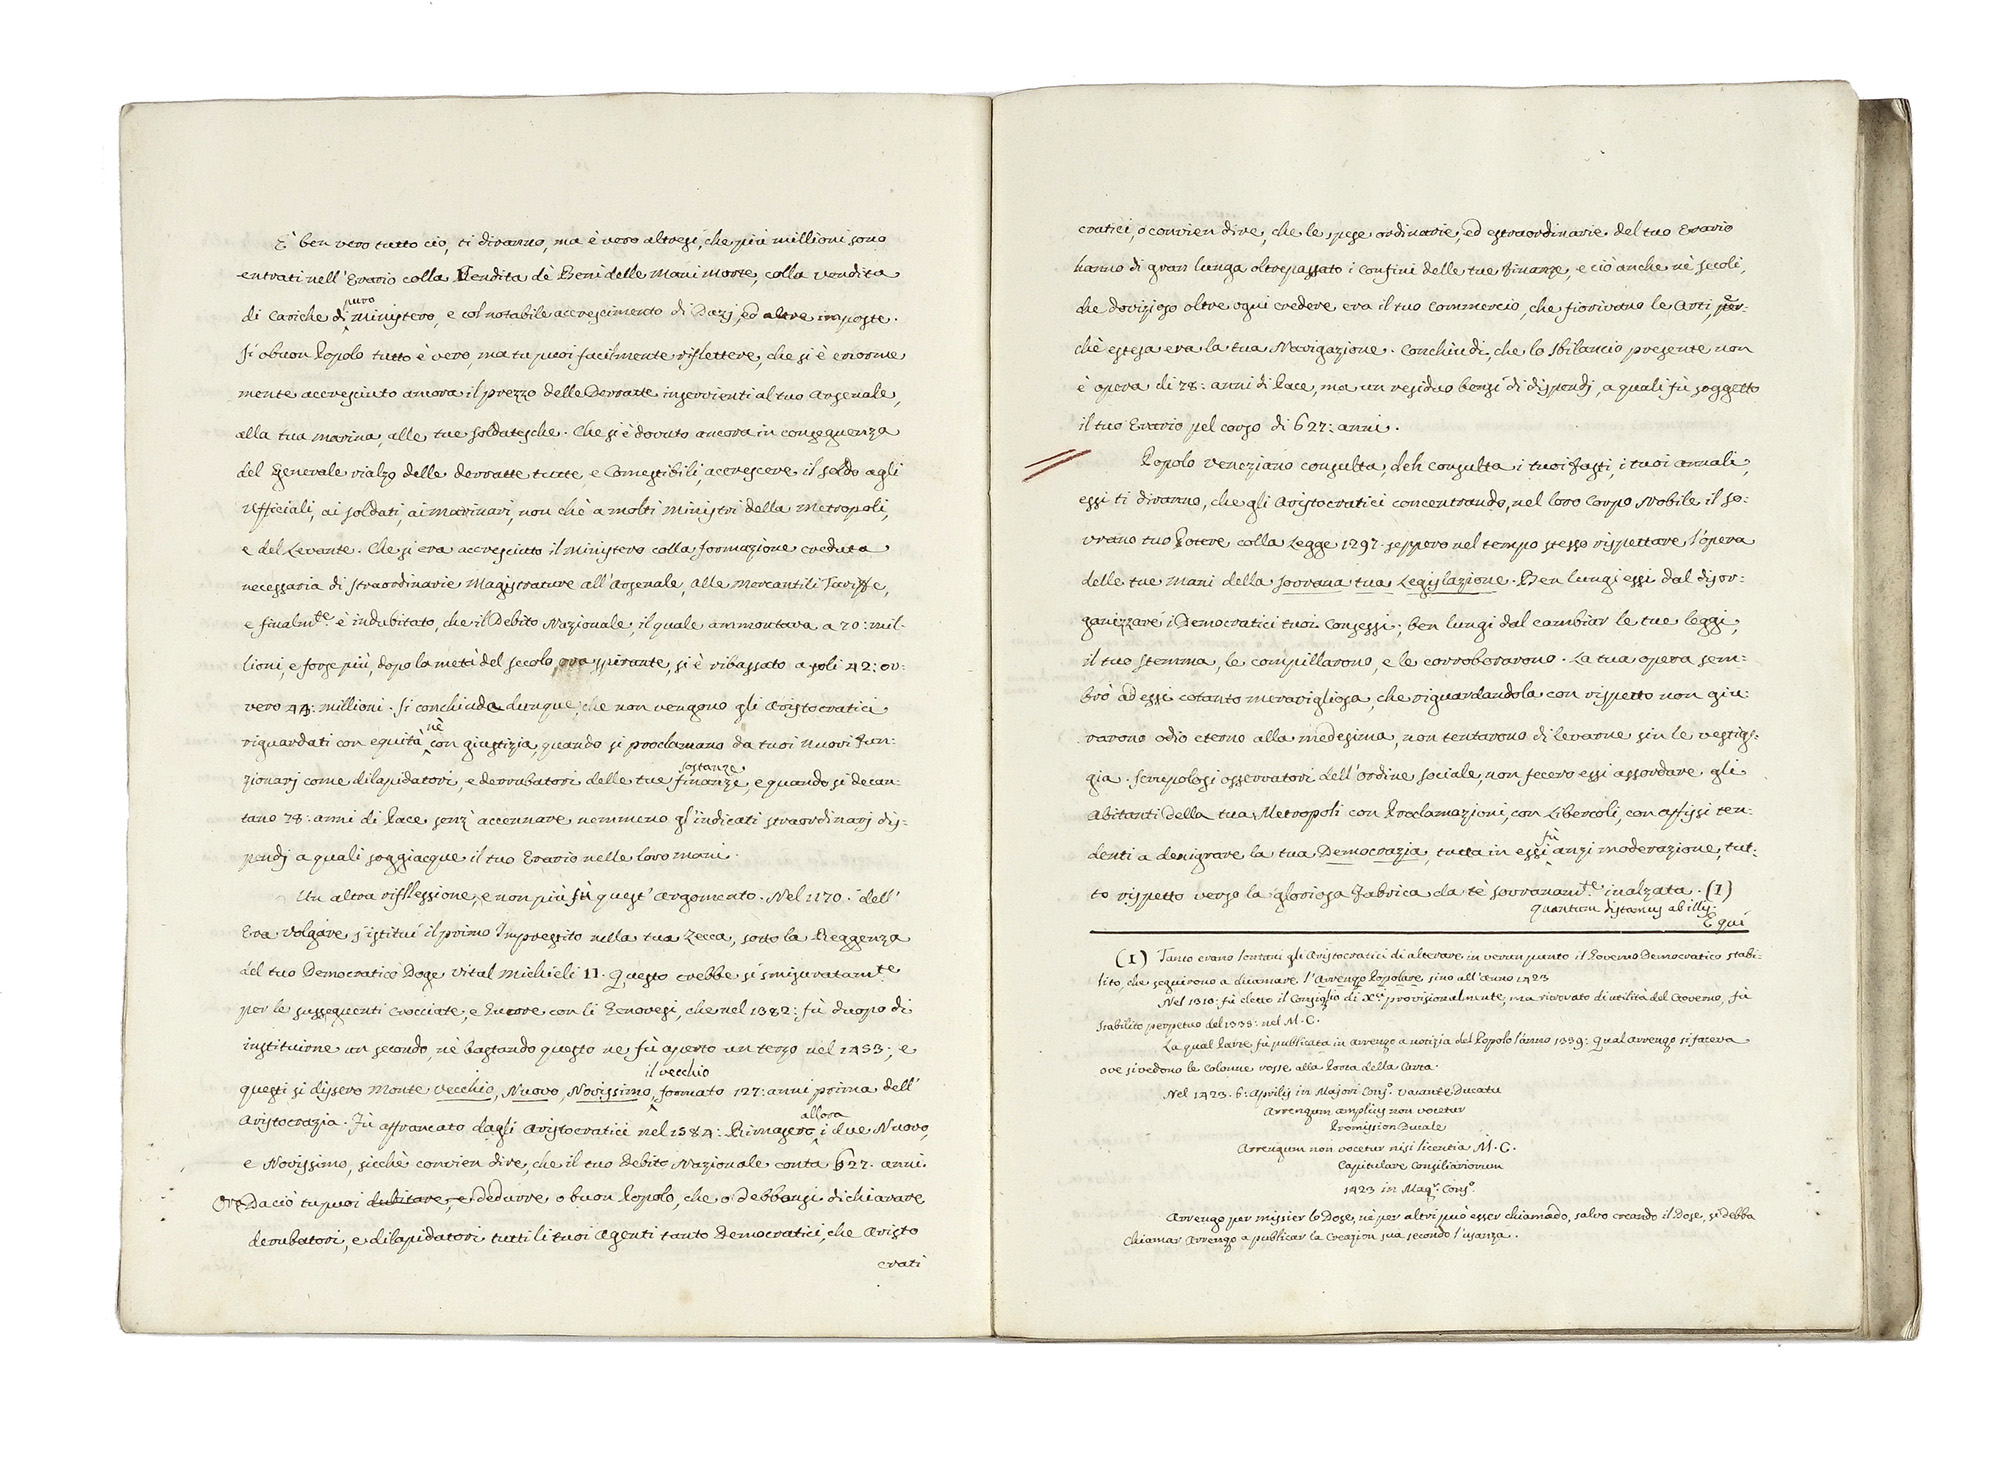 È ben vero tutto ciò, ti diranno, ma è vero altresì, che più millioni sono
entrati nell' Erario colla Vendita dè Beni delle Mani Morte, colla vendita
puro
di Cariche di Ministero, e col notabile accrescimento di Dazj, ed altre imposte.
Sì o buon Popolo tutto è vero, ma tu puoi facilmente riflettere, che si è enorme
mente accresciuto ancora il prezzo delle Derratte inservienti al tuo Arsenale,
alla tua Marina, alle tue Soldatesche. Che si è dovuto ancora in conseguenza
del generale rialzo delle derratte tutte, e Comestibili, accrescere il soldo agli
Ufficiali, ai soldati, ai Marinari, non chè a molti Ministri della Metropoli,
e del Levante. Che si era accresciuto il Ministero colla formazione creduta
necessaria di straordinarie Magistrature all'Arsenale, alle Mercantili Tariffe,
e finalmte. è indubitato, che il Debito Nazionale, il quale ammontava a 70: mil-
lioni, e forse più, dopo la metà del secolo, ora spirante, si è ribassato a soli 42: ov:
vero 44: millioni. Si conchiuda dunque, che non vengono gli Aristocratici
nè
riguardati con equità con giustizia, quando si proclamano da tuoi Nuovi Fun-
sostanze
zionarj come dilapidatori, e derrubatori delle tue finanze, e quando si decan-
tano 78: anni di Pace senz' accennare nemmeno gl'indicati straordinarj dis-
pendj a quali soggiacque il tuo Erario nelle loro mani.
Un altra riflessione, e non più sù quest' Argomento. Nel 1170. dell'
Era Volgare s'istituì il primo Imprestito nella tua Zecca, sotto la Reggenza
del tuo Democratico Doge Vital Michieli II. Questo crebbe sì smisuratamte
per le susseguenti Crocciate, e Guerre con li Genovesi, che nel 1382: fù d'uopo di
instituirne un secondo, nè bastando questo ne fù aperto un terzo nel 1453; e
il vecchio
questi si dissero Monte Vecchio, Nuovo, Novissimo, formato 127: anni prima dell'
allora
Aristocrazia. Fù affrancato dagli Aristocratici nel 1584: Rimasero i due Nuovo,
e Novissimo, sicchè convien dire, che il tuo Debito Nazionale conta 627. anni.
Ora Da ciò tu puoi dubitare, e dedurre o buon Popolo, che o debbansi dichiarare
derubatori, e dilapidatori tutti li tuoi Agenti tanto Democratici, che Aristo
crati
cratici, o convien dire, che le spese ordinarie, ed estraordinarie del tuo Erario
hanno di gran lunga oltrepassato i Confini delle tue finanze, e ciò anche nè secoli,
che dovizioso oltre ogni credere era il tuo Commercio, che fiorivano le Arti, per-
chè estesa era la tua Navigazione. Conchiudi, che lo sbilancio presente non
è opera di 78: anni di Pace, ma un residuo bensì di dispendj, a quali fù soggetto
il tuo Erario pel corso di 627: anni.
Popolo Veneziano consulta, deh consulta i tuoi fasti, i tuoi annali,
essi ti diranno, che gli Aristocratici concentrando, nel loro Corpo Nobile il so:
vrano tuo Potere colla Legge 1297. seppero nel tempo stesso rispettare l'opera
delle tue mani della sovrana tua Legislazione. Ben lungi essi dal disor:
ganizzare i Democratici tuoi Consessi; ben lungi dal cambiar le tue leggi,
il tuo stemma, le compillarono, e le corroborarono. La tua opera sem:
brò ad essi cotanto meravigliosa, che riguardandola con rispetto non giu:
rarono odio eterno alla medesima, non tentarono di levarne sin le vestig:
gia. Scrupolosi osservatori dell'ordine sociale, non fecero essi assordare gli
Abitanti della tua Metropoli con Proclamazioni, con Libercoli, con affissi ten:
fù
denti a denigrare la tua Democrazia, tutta in essi anzi moderazione, tut-
to rispetto verso la gloriosa Fabrica da tè sovranamte. inalzata. (1)
Quantum distamus ab illis.
E qui
(1) Tanto erano lontani gli Aristocratici di alterare in verun punto il Governo Democratico stabi-
lito, che seguirono a chiamare l'Arrengo Popolare sino all'anno 1423
Nel 1310: fù eletto il Consiglio di Xci provisionalmente, ma ritrovato di utilità del Governo, fù
stabilito perpetuo del 1335: nel M. C.
La qual Parte fù publicata in arrengo a notizia del Popolo l'anno 1339: Qual Arrengo si faceva
ove si vedono le colonne rosse alla Porta della Carta.
Nel 1423. 6: Aprilis in Majori Conso. vacante Ducatu
Arrengum amplius non vocetur
Promission Ducale
Arrengum non vocetur nisi licentia M. C.
Capitulare Consiliariorum
1423 in Magr. Conso.
Arrengo per missier lo Dose, nè per altri può esser chiamado, salvo creando il Dose, si debba
chiamar Arrengo a publicar la Creazion sua secondo l'usanza.